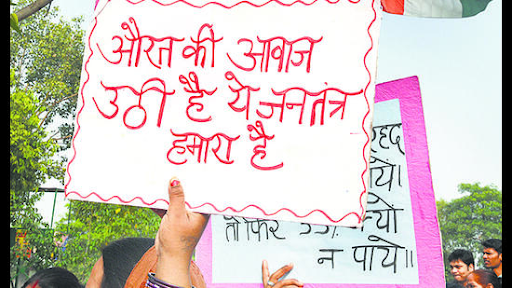 औरत की आवाज
उठी है ये जनतंत्र
हमारा है
हद
पाये।
तो फिर क्यों
न पाये॥